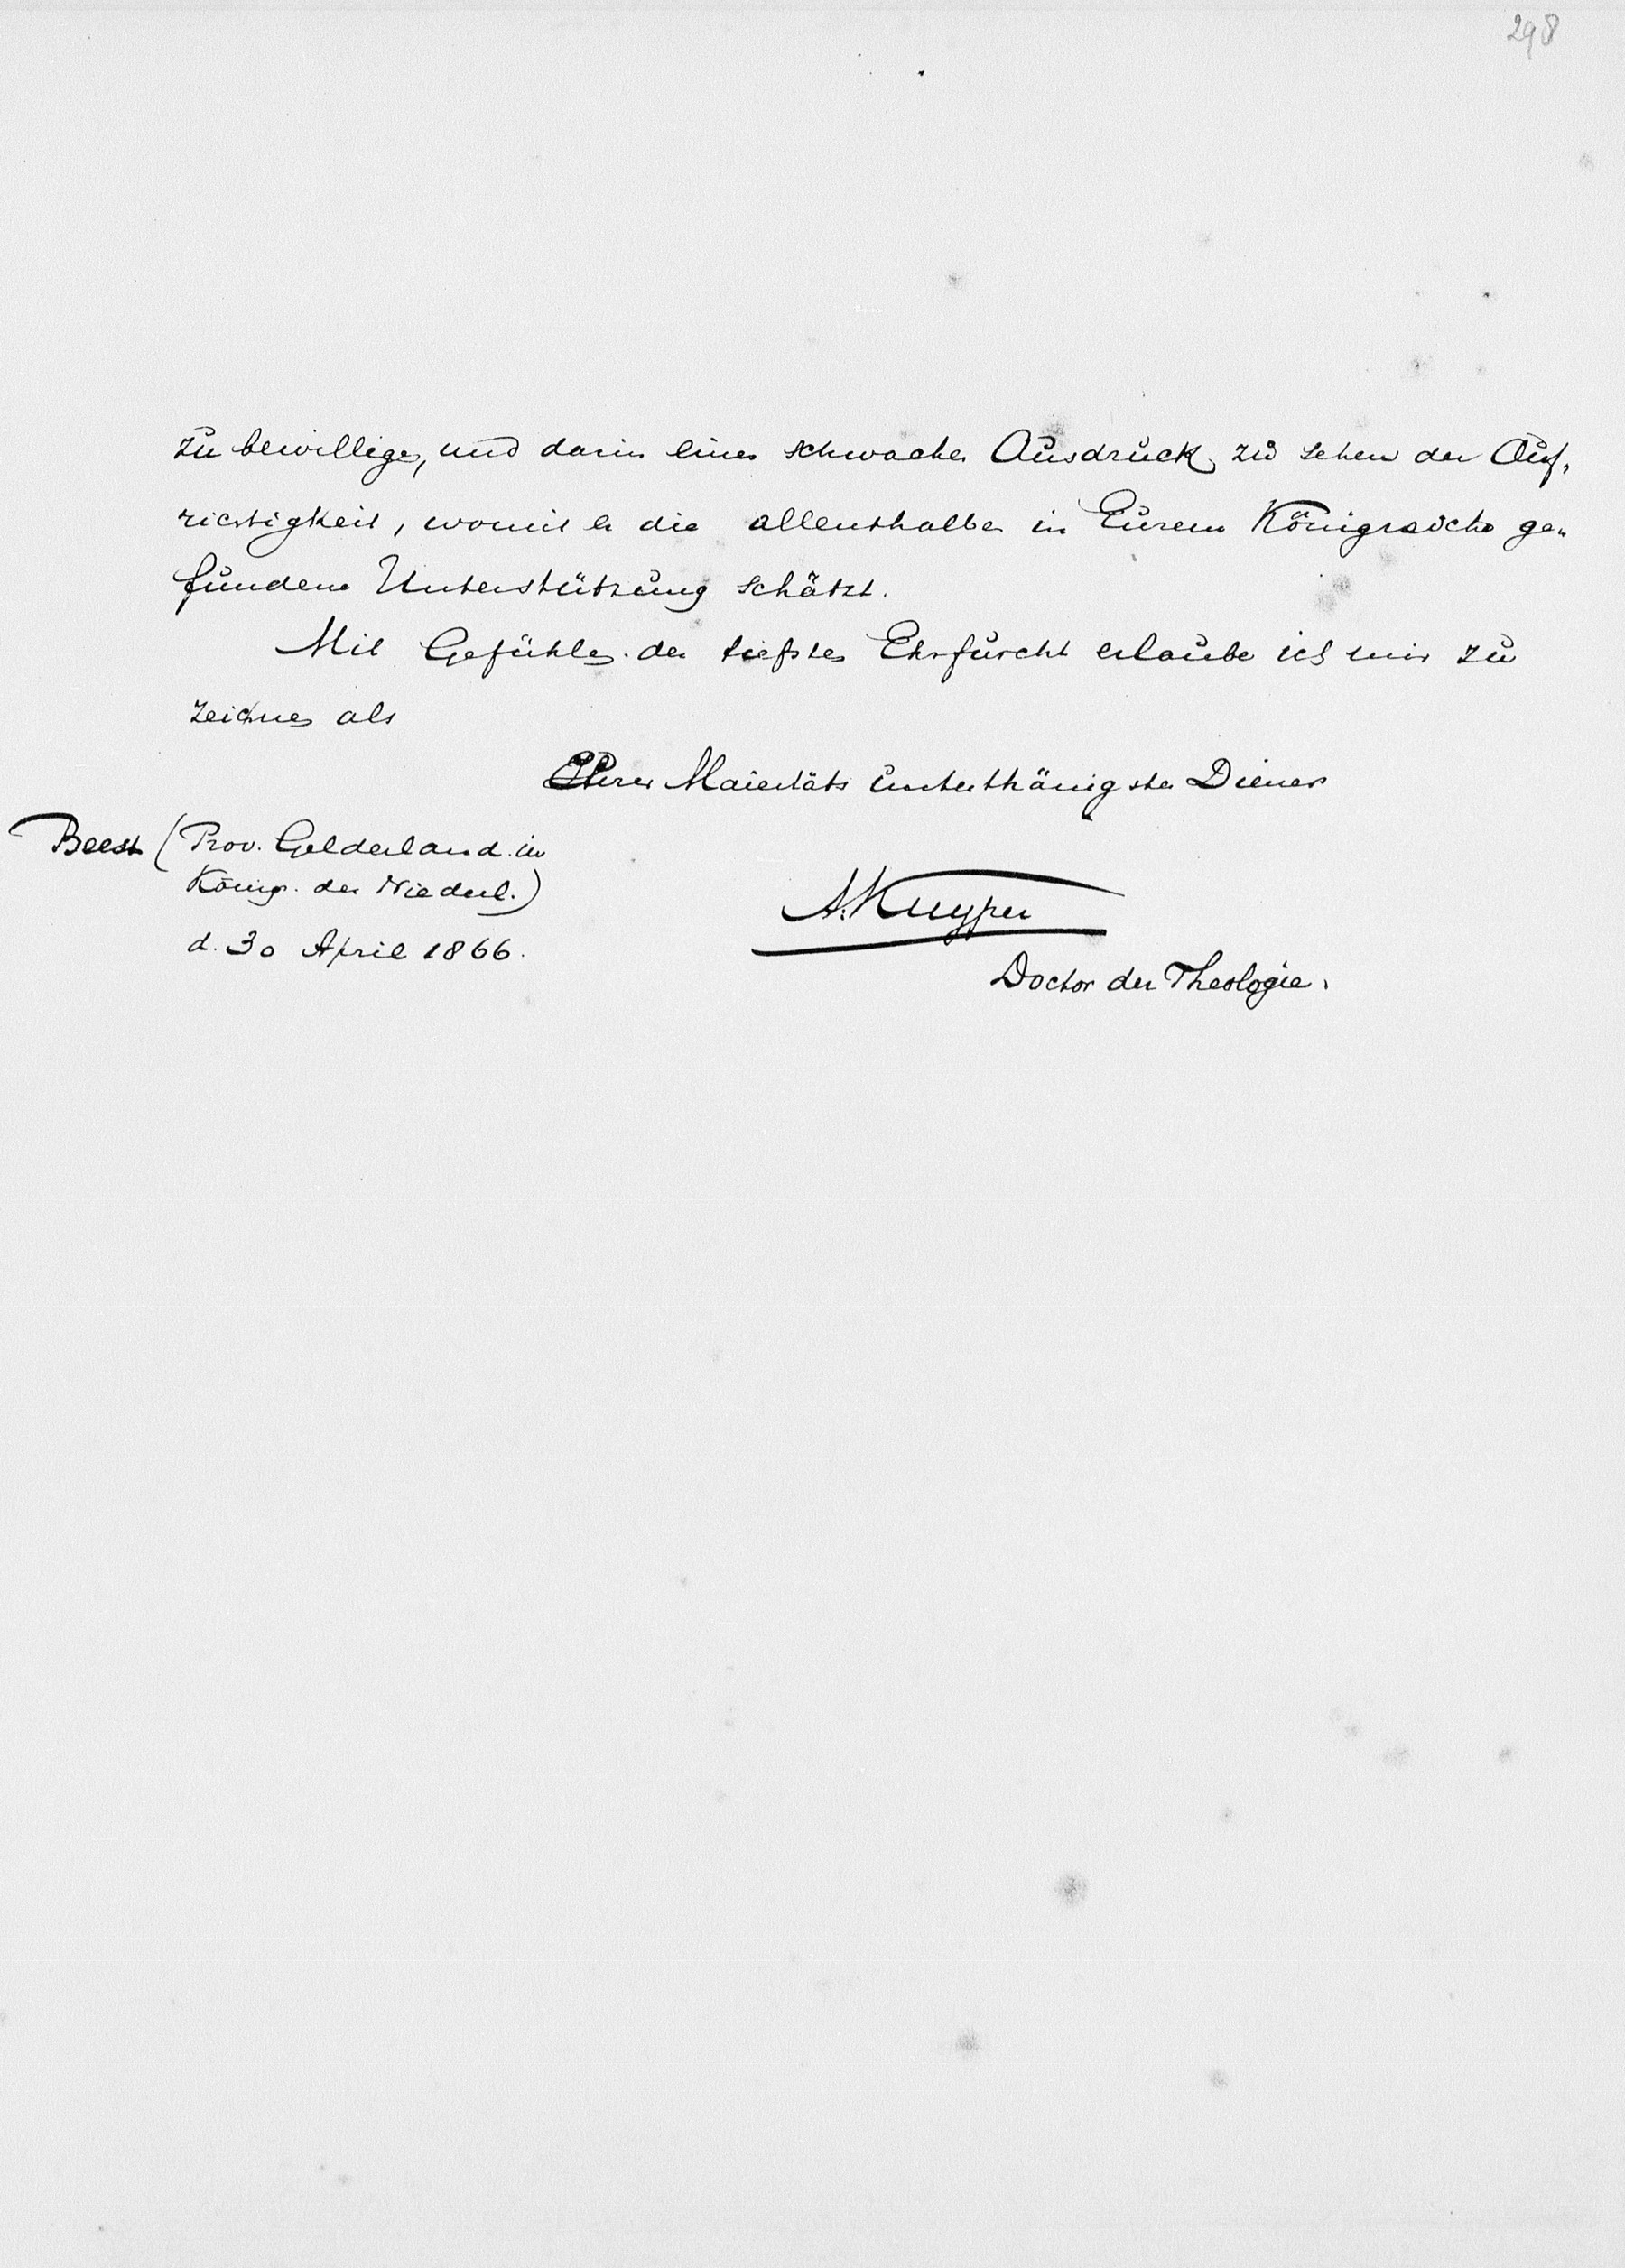 298
zu bewilligen, und darin einen schwachen Ausdruck zu sehen der Auf-
richtigkeit, womit er die allenthalben in Eurem Königreiche ge-
fundene Unterstützung schätzt.
Mit Gefühlen der tiefsten Ehrfurcht erlaube ich mir zu
zeichnen als
Eurer Maiestäts unterthänigster Diener
Beest (Prov. Gelderland in
Königr. der Niederl.)
d. 30 April 1866.
A. Kuyper
Doctor der Theologie.